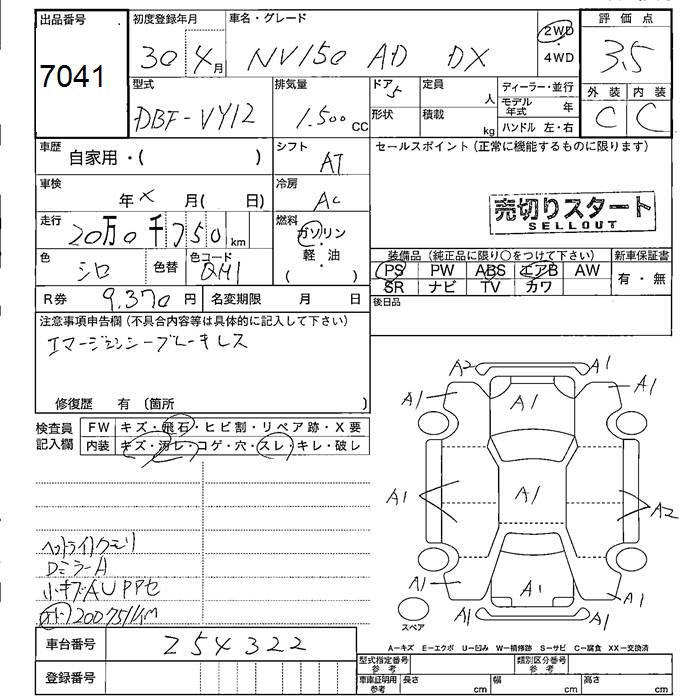 出品番号
7041
初度登録年月
30 年 4 月
車名・グレード
NV150 AD DX
2WD
・
4WD
評価点
3.5
外装 内装
C C
型式
DBF-VY12
排気量
1.500 CC
ドア
5
形状
定員
人
積載
kg
ディーラー・並行
モデル年式 年
ハンドル 左・右
車歴
自家用・( )
シフト
AT
セールスポイント(正常に機能するものに限ります)
車検
年 × 月( 日)
冷房
AC
売切りスタート
SELLOUT
走行
20万0千750 km
燃料
ガソリン
・
軽油
・
( )
色
シロ
色替
色コード
QM1
装備品(純正品に限り○をつけて下さい)
PS PW ABS エアB AW
SR ナビ TV カワ
新車保証書
有・無
後日品
R券 9.370 円
名変期限 月 日
注意事項申告欄(不具合内容等は具体的に記入して下さい)
エマージェンシーブレーキレス
修復歴 有 (箇所 )
検査員記入欄
FW キズ・飛石・ヒビ割・リペア跡・X要
内装 キズ・汚レ・コゲ・穴・スレ・キレ・破レ
ヘッドライトクモリ
DミラーA
小キズAUPPセ
200751KM
A2 A1
A1 A1 A1
A1 A1 A2
A1 A1 A1
A1 A1
スペア
A−キズ E−エクボ U−凹み W−補修跡 S−サビ C−腐食 XX−交換済
車台番号 254322
登録番号
型式指定番号 参考
類別区分番号 参考
車庫証明用 参考
長さ cm 幅 cm 高さ cm